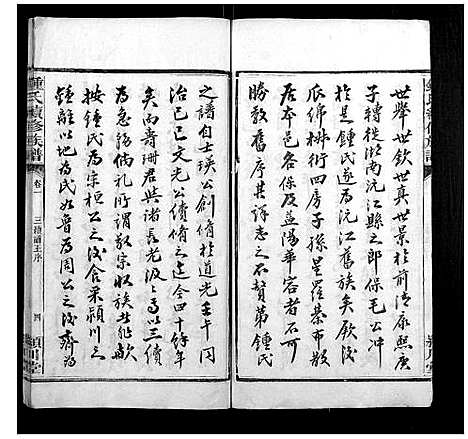 世舉世欽世真世景於前清康熙庚
子轉徙湖南沅江縣之郎保毛公冲
於是鍾氏遂為沅江舊族矣厥後
瓜綿椒衍四房子孫星羅棊布散
居本邑各保及益陽華容者不可
勝數者其詳志之不贅第鍾氏
之譜自士瑛公創脩於道光壬午同
治己巳文光公續脩之迄今四十餘年
矣而哲珊君與諸長老汲汲焉以三續
為急務佩禮所謂敬宗收族者非歟
按鍾氏為宋桓公之後食采潁川
鍾離以地為氏如魯為周公之後齊為
鍾氏續修族譜
卷一
三續譜序
四
潁川堂